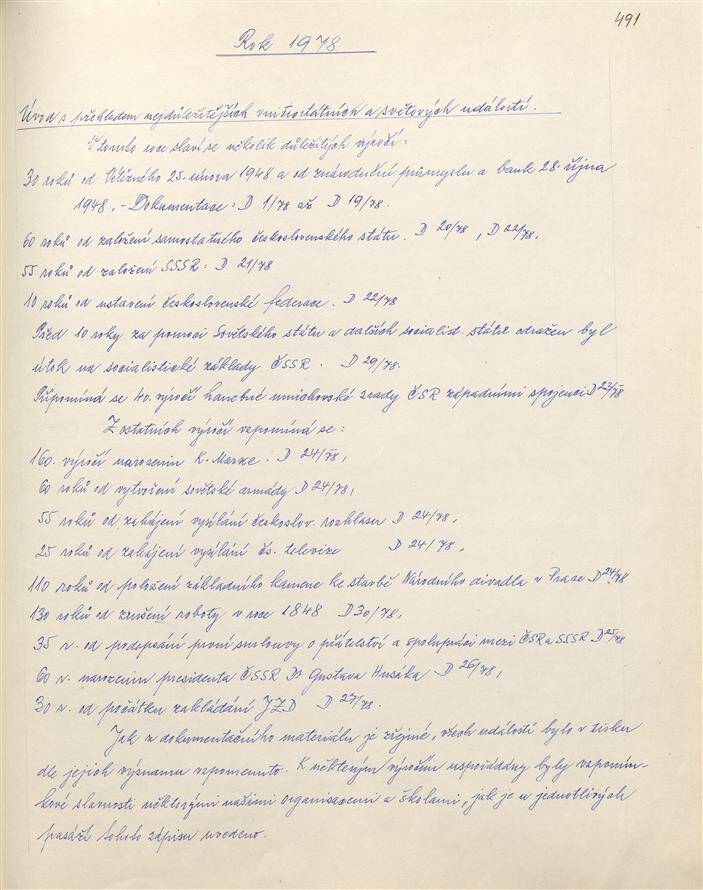 491
Rok 1978
Úvod s přehledem nejdůležitějších vnitrostátních a světových událostí.
V tomto roce slaví se několik důležitých výročí:
30 roků od Vítězného 25. února 1948 a od znárodnění průmyslu a bank 28. října
1948. - Dokumentace: D 1/78 až D 19/78.
60 roků od založení samostatného československého státu. D 20/78, D 22/78.
55 roků od založení SSSR: D 21/78
10 roků od ustavení československé federace. D 22/78
Před 10 roky za pomoci Sovětského státu a dalších socialist. států odražen byl
útok na socialistické základy ČSSR. D 29/78.
Připomíná se 40. výročí hanebné mnichovské zrady ČSR západními spojenci D 23/78
Z ostatních výročí vzpomíná se:
160. výročí narozenin K. Marxe. D 24/78,
60 roků od vytvoření sovětské armády D 24/78,
55 roků od zahájení vysílání českoslov. rozhlasu D 24/78,
25 roků od zahájení vysílání čs. televize D 24/78,
110 roků od položení základního kamene ke stavbě Národního divadla v Praze D 24/78
130 roků od zrušení roboty v roce 1848 D 30/78,
35 r. od podepsání první smlouvy o přátelství a spolupráci mezi ČSR a SSSR D 25/78
60 r. narozenin presidenta ČSSR Dr Gustava Husáka D 26/78,
30 r. od počátku zakládání JZD D 27/78.
Jak z dokumentačního materiálu je zřejmé, všech událostí bylo v tisku
dle jejich významu vzpomenuto. K některým výročím uspořádány byly vzpomín-
kové slavnosti některými našimi organisacemi a školami, jak je v jednotlivých
pasáží tohoto zápisu uvedeno.